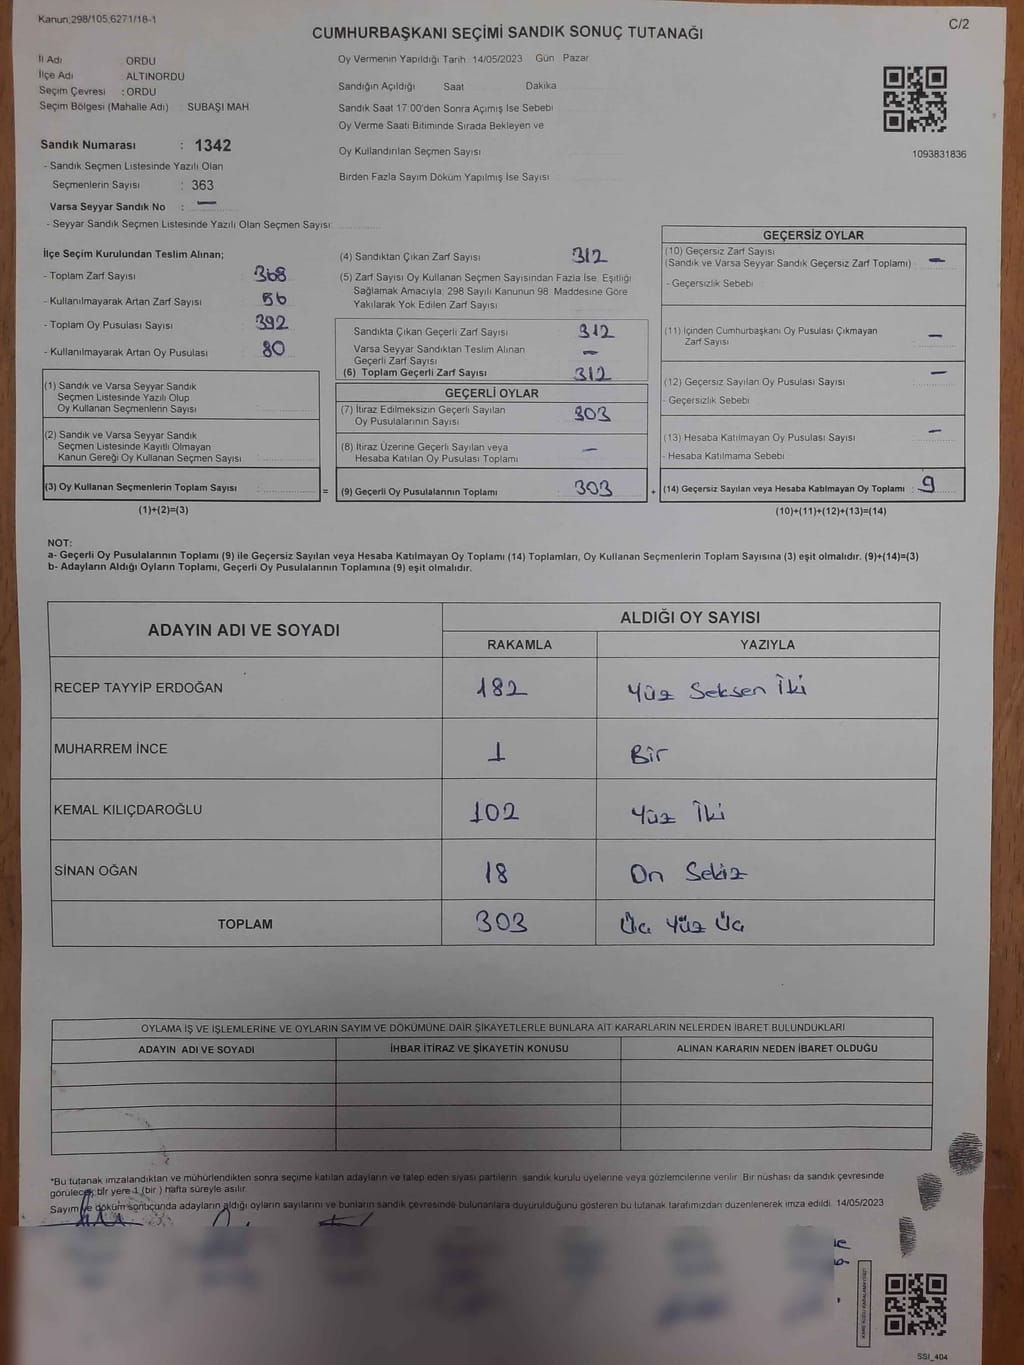 Kanun;298/105;6271/16-1
C/2
CUMHURBAŞKANI SEÇİMİ SANDIK SONUÇ TUTANAĞI
İl Adı : ORDU
İlçe Adı : ALTINORDU
Seçim Çevresi : ORDU
Seçim Bölgesi (Mahalle Adı) : SUBAŞI MAH
Oy Vermenin Yapıldığı Tarih 14/05/2023 Gün Pazar
Sandığın Açıldığı Saat Dakika
Sandık Saat 17 00'den Sonra Açımış Ise Sebebi
Oy Verme Saati Bitiminde Sırada Bekleyen ve
Oy Kullandırılan Seçmen Sayısı
Birden Fazla Sayım Döküm Yapılmış Ise Sayısı
1093831836
Sandık Numarası : 1342
- Sandık Seçmen Listesinde Yazılı Olan
Seçmenlerin Sayısı : 363
Varsa Seyyar Sandık No : —
- Seyyar Sandık Seçmen Listesinde Yazılı Olan Seçmen Sayısı:
İlçe Seçim Kurulundan Teslim Alınan;
- Toplam Zarf Sayısı 368
- Kullanılmayarak Artan Zarf Sayısı 56
- Toplam Oy Pusulası Sayısı 392
- Kullanılmayarak Artan Oy Pusulası 80
(1) Sandık ve Varsa Seyyar Sandık
Seçmen Listesinde Yazılı Olup
Oy Kullanan Seçmenlerin Sayısı
(2) Sandık ve Varsa Seyyar Sandık
Seçmen Listesinde Kayıtlı Olmayan
Kanun Gereği Oy Kullanan Seçmen Sayısı
(3) Oy Kullanan Seçmenlerin Toplam Sayısı :
(1)+(2)=(3)
=
(4) Sandıktan Çıkan Zarf Sayısı 312
(5) Zarf Sayısı Oy Kullanan Seçmen Sayısından Fazla Ise, Eşitliği
Sağlamak Amacıyla, 298 Sayılı Kanunun 98 Maddesine Göre
Yakılarak Yok Edilen Zarf Sayısı
Sandıkta Çıkan Geçerli Zarf Sayısı 312
Varsa Seyyar Sandıktan Teslim Alınan
Geçerli Zarf Sayısı —
(6) Toplam Geçerli Zarf Sayısı 312
GEÇERLİ OYLAR
(7) İtiraz Edilmeksizin Geçerli Sayılan
Oy Pusulalarının Sayısı 303
(8) İtiraz Üzerine Geçerli Sayılan veya
Hesaba Katılan Oy Pusulası Toplamı —
(9) Geçerli Oy Pusulalarının Toplamı 303
+
GEÇERSİZ OYLAR
(10) Geçersiz Zarf Sayısı
(Sandık ve Varsa Seyyar Sandık Geçersiz Zarf Toplamı) —
- Geçersizlik Sebebi
(11) İçinden Cumhurbaşkanı Oy Pusulası Çıkmayan
Zarf Sayısı —
(12) Geçersiz Sayılan Oy Pusulası Sayısı —
- Geçersizlik Sebebi
(13) Hesaba Katılmayan Oy Pusulası Sayısı —
- Hesaba Katılmama Sebebi
(14) Geçersiz Sayılan veya Hesaba Katılmayan Oy Toplamı : 9
(10)+(11)+(12)+(13)=(14)
NOT:
a- Geçerli Oy Pusulalarının Toplamı (9) ile Geçersiz Sayılan veya Hesaba Katılmayan Oy Toplamı (14) Toplamları, Oy Kullanan Seçmenlerin Toplam Sayısına (3) eşit olmalıdır. (9)+(14)=(3)
b- Adayların Aldığı Oyların Toplamı, Geçerli Oy Pusulalarının Toplamına (9) eşit olmalıdır.
ADAYIN ADI VE SOYADI
ALDIĞI OY SAYISI
RAKAMLA YAZIYLA
RECEP TAYYİP ERDOĞAN 182 Yüz Seksen İki
MUHARREM İNCE 1 Bir
KEMAL KILIÇDAROĞLU 102 Yüz İki
SİNAN OĞAN 18 On Sekiz
TOPLAM 303 Üç Yüz Üç
OYLAMA İŞ VE İŞLEMLERİNE VE OYLARIN SAYIM VE DÖKÜMÜNE DAİR ŞİKAYETLERLE BUNLARA AİT KARARLARIN NELERDEN İBARET BULUNDUKLARI
ADAYIN ADI VE SOYADI İHBAR İTİRAZ VE ŞİKAYETİN KONUSU ALINAN KARARIN NEDEN İBARET OLDUĞU
*Bu tutanak imzalandıktan ve mühürlendikten sonra seçime katılan adayların ve talep eden siyasi partilerin sandık kurulu üyelerine veya gözlemcilerine verilir. Bir nüshası da sandık çevresinde
görülecek bir yere 1 (bir ) hafta süreyle asılır.
Sayım ve döküm sonucunda adayların aldığı oyların sayılarını ve bunların sandık çevresinde bulunanlara duyurulduğunu gösteren bu tutanak tarafımızdan düzenlenerek imza edildi. 14/05/2023
KARE KODU KARALAMAYINIZ!
SSI_404